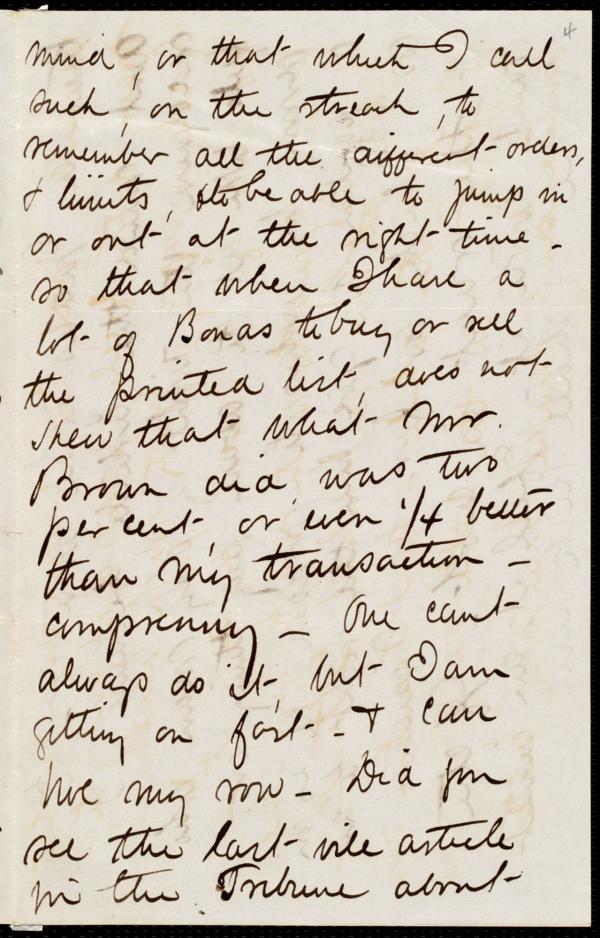 4
mind, or that which I call
such, on the streach, to
remember all the different orders,
& limits, & to be able to jump in
or out at the right time -
so that when I have a
lot of Bonds to buy or sell
the printed list, does not
shew that what Mr.
Brown did, was two
per cent, or even 1/4 better
than my transaction -
One cant
always do it, but I am
getting on fast - & can
hoe my row - Did you
see the last vile article
in the Tribune about